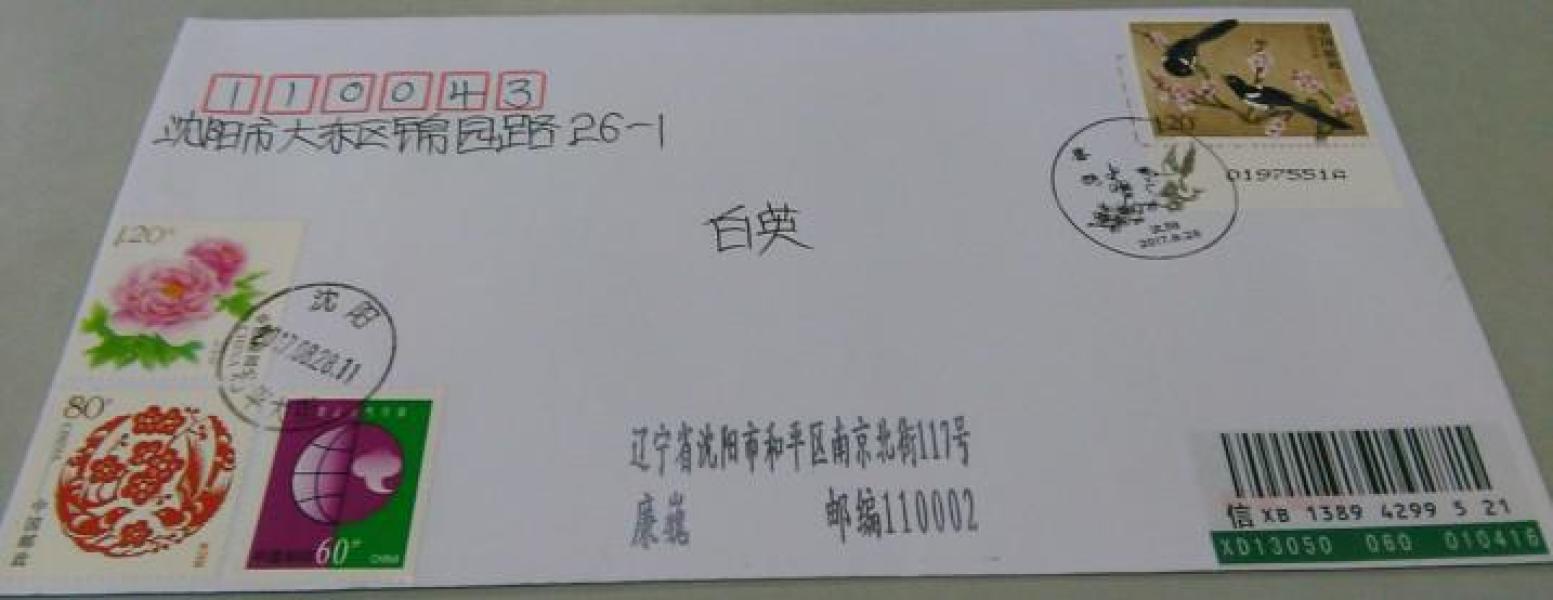 110043
沈阳市大东区锦园路26-1
白英
1.20
0197551A
沈阳
2017.8.28
1.20
沈阳
2017.08.28.11
80
CHINA
中国邮政
60
CHINA
中国邮政
辽宁省沈阳市和平区南京北街117号
康巍 邮编110002
信 XB 1389 4299 5 21
XD13050 060 010416